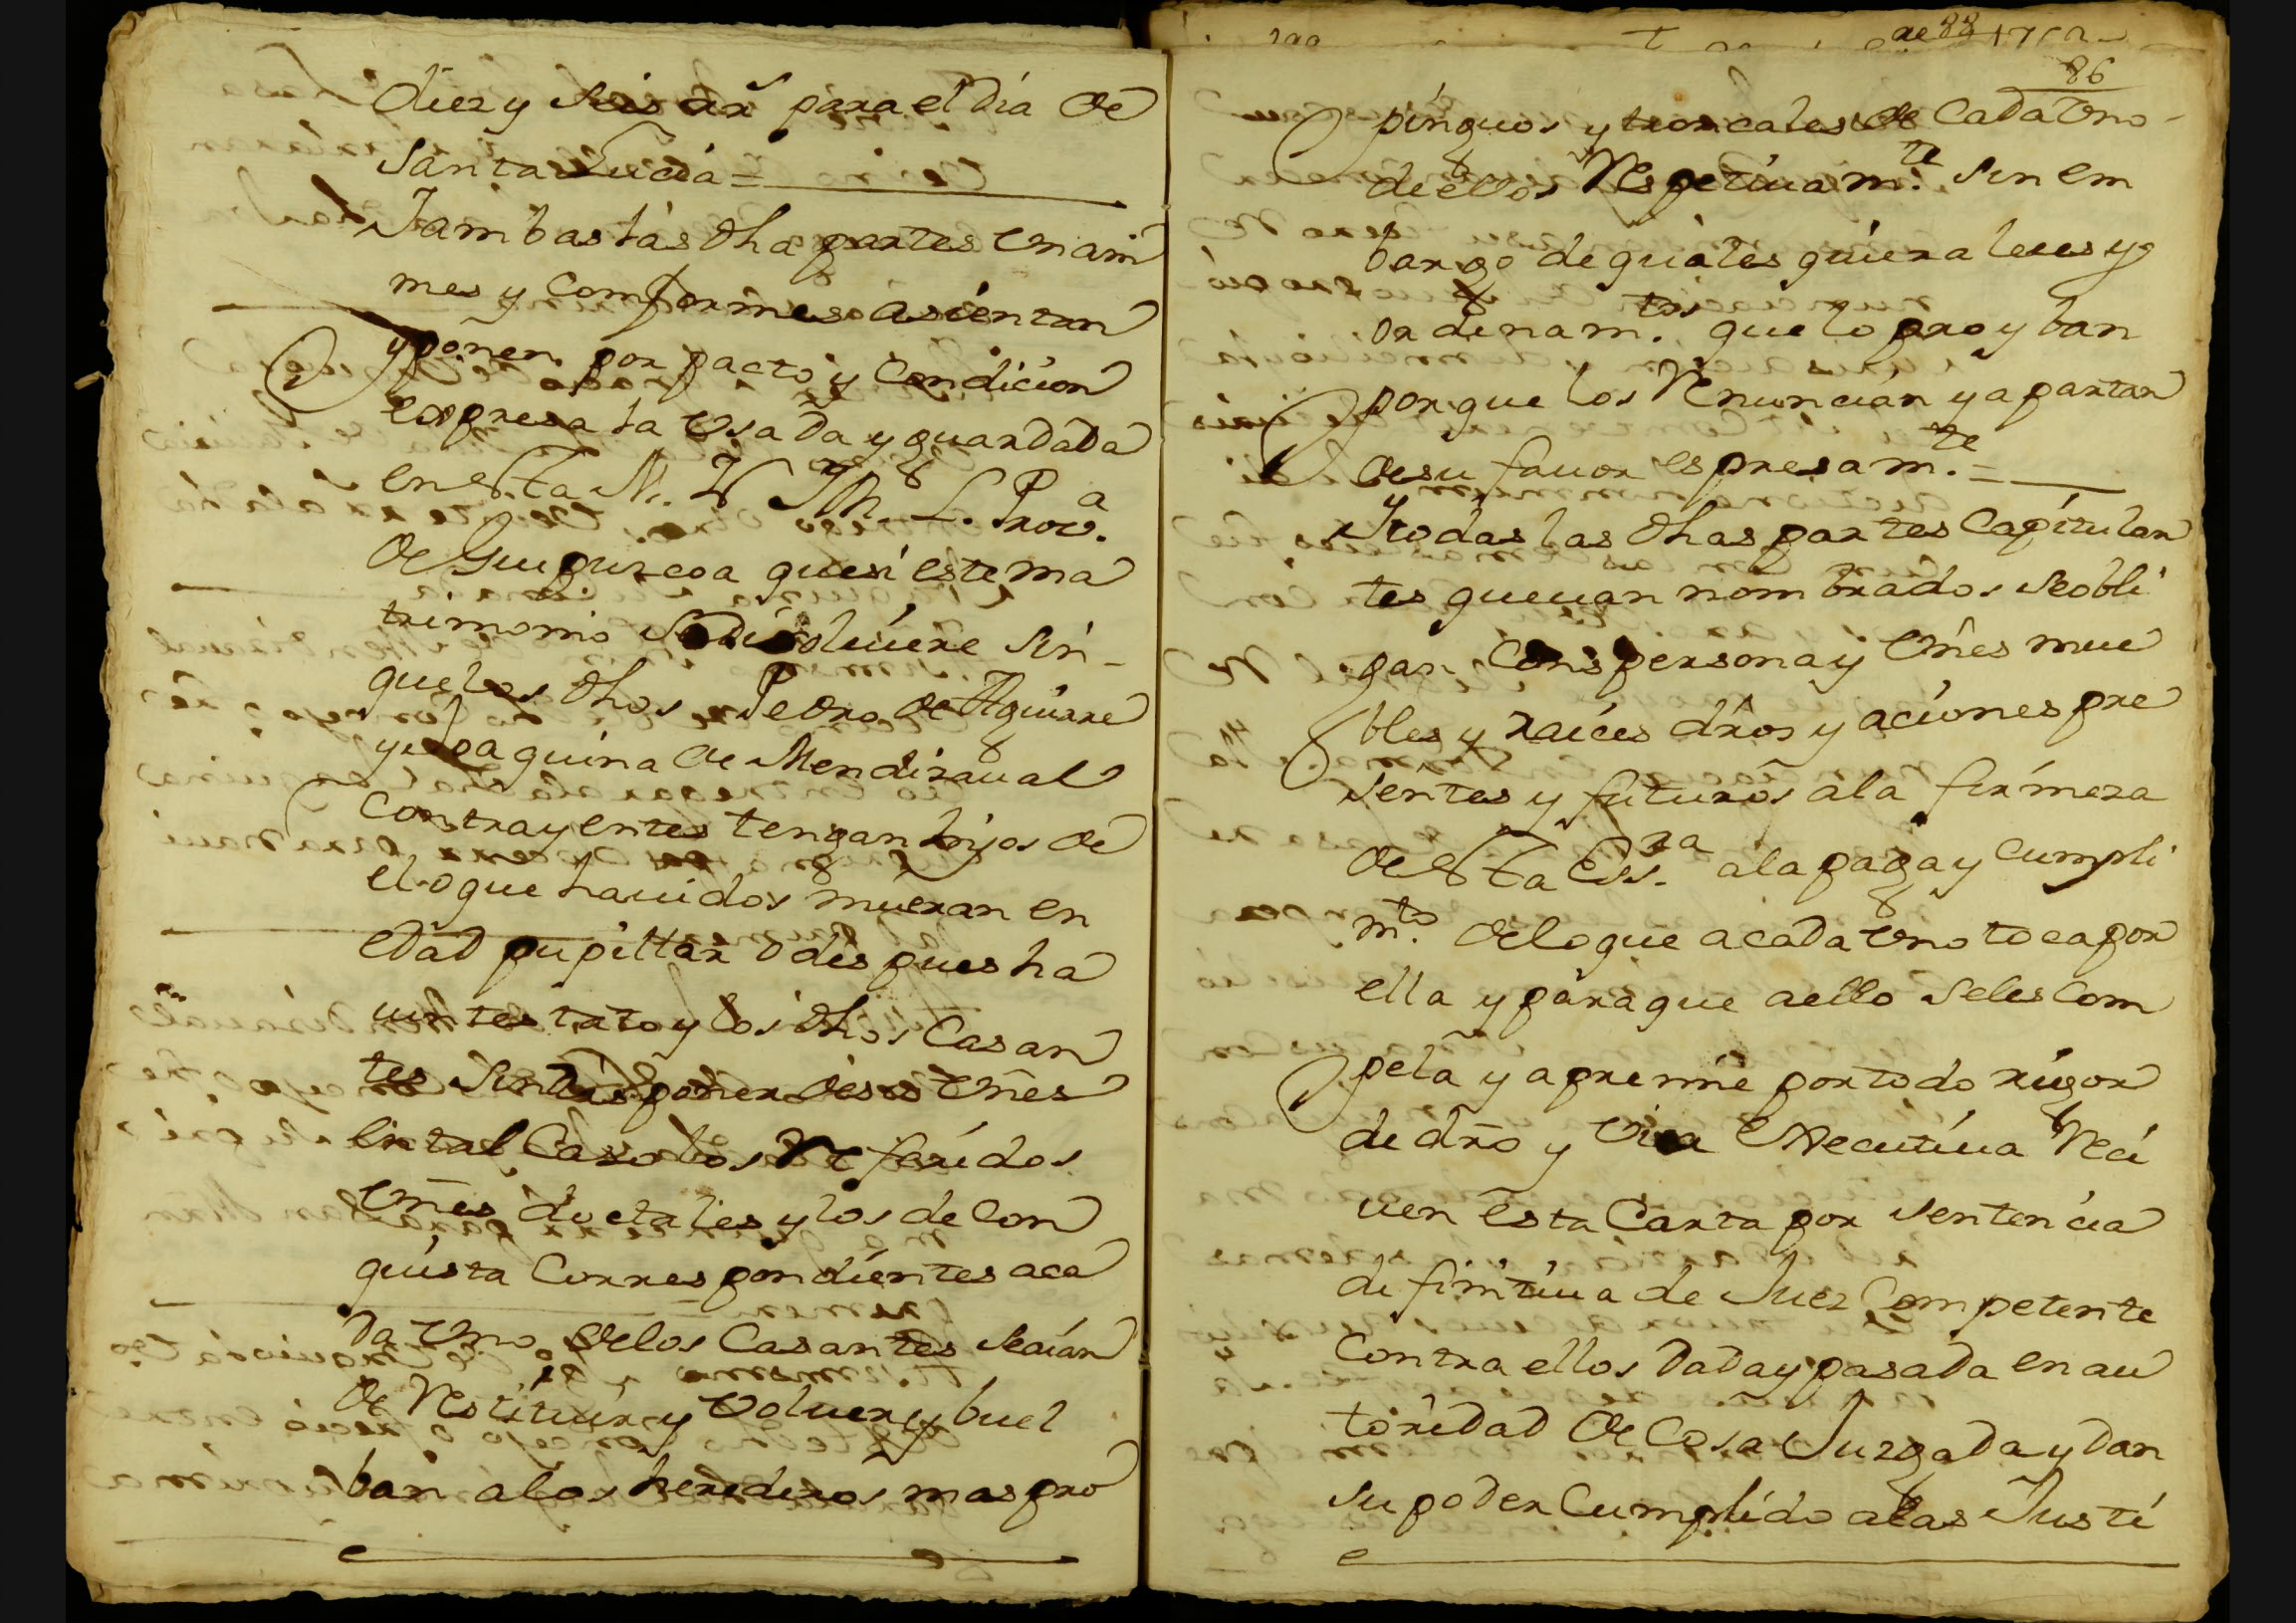 diez y seis años para el dia de
Santa Lucia =
Jambas las dha partes Unani
mes y Comformes asientan
y ponen por pacto y Condicion
expresa la Usada y guardada
en esta N. Y M. L. Prov.a
de Guipuzcoa que si este ma
trimonio se disolviere sin
que los dhos Pedro de Aguirre
y Joaquina de Mendizaual
Contrayentes tengan hijos de
el o que hauidos mueran en
edad pupillar o despues ha
uintestato y los dhos Casan
tes sin disponer de sus Vnes
en tal Caso los Referidos
Vnes dotales y los de Con
quista Correspondientes aca
da Uno de los Casantes seaian
de Restituir y Voluer y buel
ban a los herederos mas pro
86
pinguos y troncales de Cada Uno
de ellos Respetiuam.te sin em
bargo de quales quiera leies y
ordenam.tos que lo proyban
porque los Renuncian y apartan
de su fauor espresam.te =
Y todas las dhas partes Capitulan
tes que uan nombrados se obli
gan Con s persona y Vnes mue
bles y raices dros y aciones pre
sentes y futuros ala firmeza
de esta Ess.ra ala paga y Cumpli
m.to de lo que a cada Uno toca por
ella y para que aello seles Com
pela y apremie por todo rigor
de dro y Via Executiua Reci
uen esta Carta por sentencia
difinitiua de Juez Competente
Contra ellos dada y pasada en au
toridad de Cosa Juzgada y dan
su poder Cumplido a las Justi